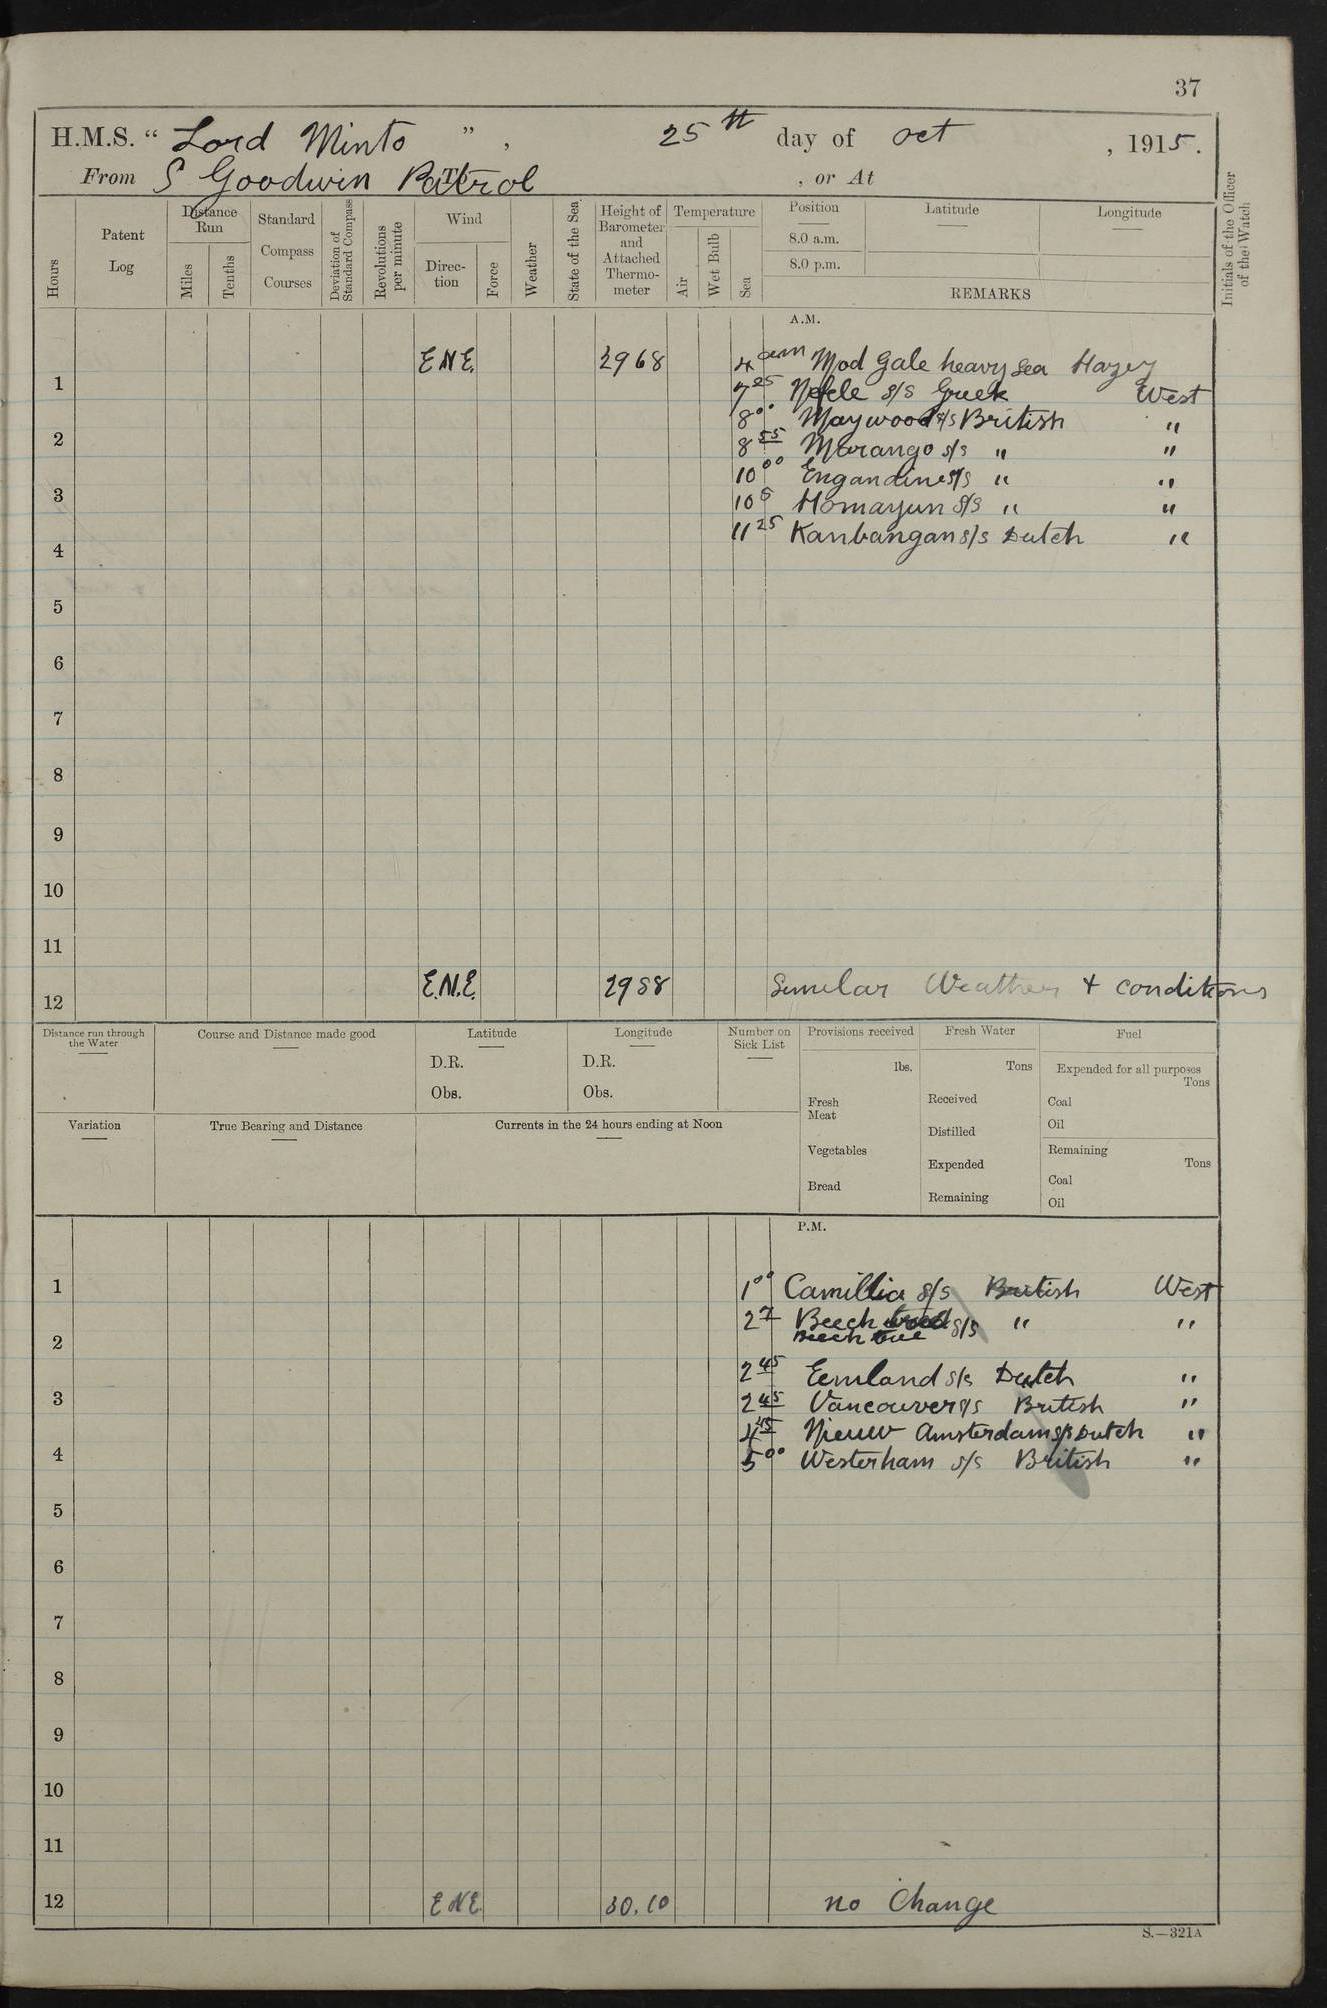 37
H.M.S. “ Lord Minto ” , 25th day of Oct , 1915.
From S Goodwin Patrol , or At
Hours
Patent Log
Distance Run
Miles
Tenths
Standard Compass Courses
Deviation of Standard Compass
Revolutions per minute
Wind
Direction
Force
Weather
State of the Sea
Height of Barometer and Attached Thermometer
Temperature
Air
Wet Bulb
Sea
Position
8.0 a.m.
8.0 p.m.
Latitude
Longitude
REMARKS
Initials of the Officer of the Watch
A.M.
E N E. 2968 4 am Mod Gale heavy sea Hazey
1 7 25 Nefele s/s Greek West
8 00 Maywood s/s British "
2 8 55 Marango s/s " "
10 00 Engandine s/s " "
3 10 5 Homayun s/s " "
4 11 25 Kanbangan s/s Dutch "
5
6
7
8
9
10
11
12 E.N.E. 2988 Similar Weather + conditions
Distance run through the Water
Course and Distance made good
Latitude
D.R.
Obs.
Longitude
D.R.
Obs.
Number on Sick List
Provisions received
lbs.
Fresh Meat
Vegetables
Bread
Fresh Water
Tons
Received
Distilled
Expended
Remaining
Fuel
Expended for all purposes
Tons
Coal
Oil
Remaining
Tons
Coal
Oil
Variation
True Bearing and Distance
Currents in the 24 hours ending at Noon
P.M.
1 1 00 Camillia s/s British West
2 7 Beech s/s " "
2 Beech tree
2 45 Eemland s/s Dutch "
3 2 45 Vancouver s/s British "
4 45 Nieuw Amsterdam s/s Dutch "
4 5 00 Westerham s/s British "
5
6
7
8
9
10
11
12 E N E. 30.10 no Change
S.—321A